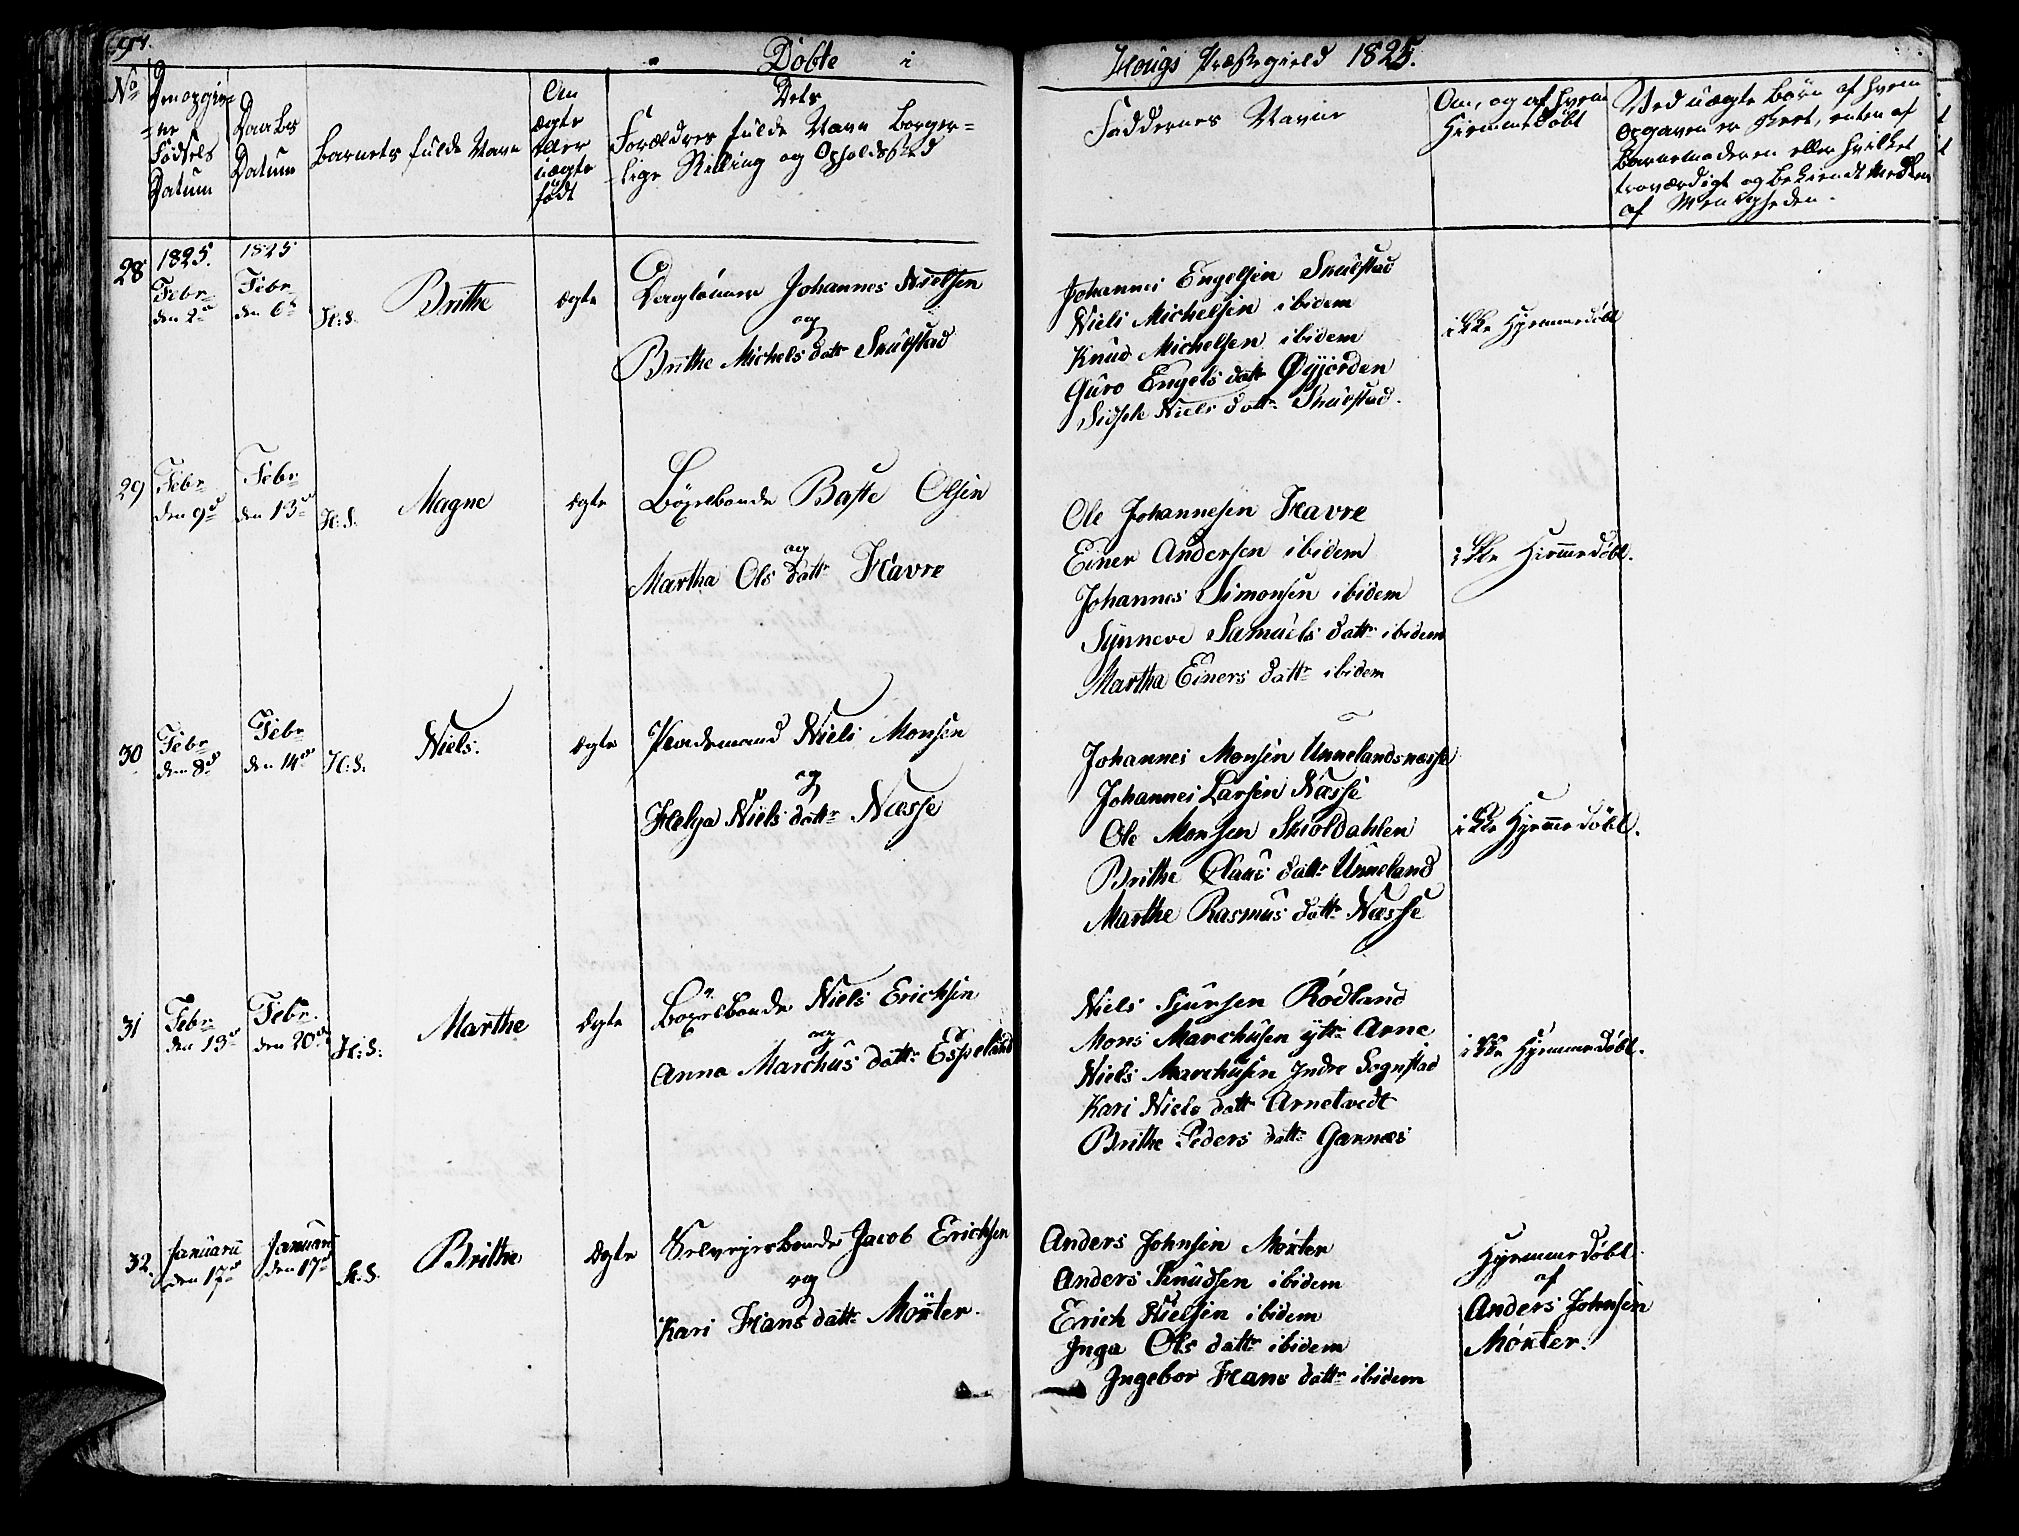 Döbte i Hougs Præstegield 1825.
No
Den opgiv-
ne
Födsels
Datum
Daabs
Datum
Barnets fulde Navn
Om
ægte
eller
uægte
födt
Dets
Forældres fulde Navn Borger-
lige Stilling og Opholdssted
Faddernes Navne
Om, og af hvem
Hiemmedöbt
Ved uægte Börn af hvem
Opgaven er skeet, enten af
Barnemoderen eller hvilket
troværdigt og bekiendt Medlem
af Menigheden.
28
1825.
Febr
den 2d
1825
Febr
den 6d
H: S.
Brithe
ægte
Daglönner Johannes Nielsen
og
Brithe Michels datr Skulstad
Johannes Engelsen Skulstad
Niels Michelsen ibidem
Knud Michelsen ibidem
Guro Engels datr Øyjorden
Sidsele Niels datr Skulstad.
ikke Hyemmedöbt
29
Febr
den 9d
Febr
den 13d
H: S.
Magne
ægte
Böxelbonde Baste Olsen
og
Martha Ols datr Havre
Ole Johannesen Havre
Einer Andersen ibidem
Johannes Simonsen ibidem
Synneve Samuels datr ibidem
Martha Einers datr ibidem
ikke Hiemmedöbt.
30
Febr
den 8d
Febr
den 14d
H: S.
Niels.
ægte
Pladsmand Niels Monsen
og
Helga Niels datr Næsse
Johannes Monsen Unnelandsnæsse
Johannes Larsen Næsse
Ole Monsen Skioldahlen
Brithe Claus datr Unneland
Marthe Rasmus datr Næsse
ikke Hyemmedöbt.
31
Febr
den 13d
Febr.
den 20d
H: S.
Marthe
Ægte
Böxelbonde Niels Ericksen
og
Anna Marchus datr Espeland
Niels Sjursen Rödland
Mons Marchusen yttr Arne
Niels Marchusen Indre Sognstad
Kari Niels datr Arnetvedt
Brithe Peders datr Garnæs
ikke Hyemmedöbt.
32.
Januarii
den 17d
Januarii
den 17d
H: S.
Brithe
Ægte
Selvejerbonde Jacob Ericksen
og
Kari Hans datr Mönter.
Anders Johnsen Mönter
Anders Knudsen ibidem
Erich Nielsen ibidem
Inga Ols datr ibidem
Ingebor Hans datr ibidem
Hyemmedöbt
af
Anders Johnsen
Mönter.